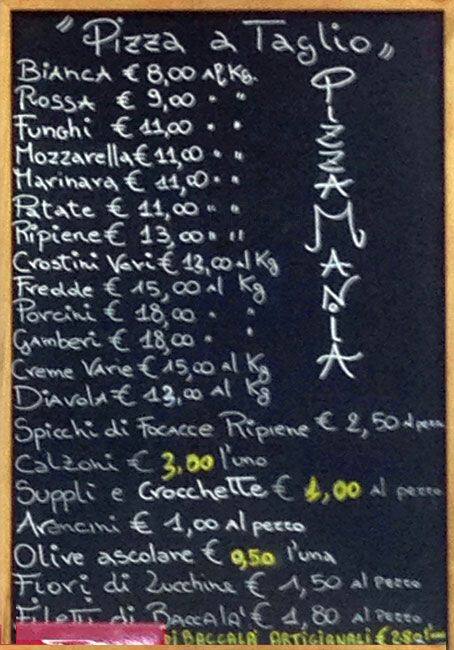 "Pizza a Taglio"
Bianca € 8,00 Al Kg.
Rossa € 9,00 " "
Funghi € 11,00 " "
Mozzarella € 11,00 " "
Marinara € 11,00 " "
Patate € 11,00 " "
Ripiene € 13,00 " "
Crostini Vari € 13,00 al Kg
Fredde € 15,00 Al Kg
Porcini € 18,00 " "
Gamberi € 18,00 " "
Creme Varie € 15,00 al Kg
Diavola € 13,00 al Kg
PIZZAMANIA
Spicchi di Focacce Ripiene € 2,50 al pezzo
Calzoni € 3,00 l'uno
Suppli e Crocchette € 1,00 Al pezzo
Arancini € 1,00 Al pezzo
Olive ascolare € 0,50 l'una
Fiori di Zucchine € 1,50 al Pezzo
Filetti di Baccala' € 1,80 al Pezzo
DI BACCALA' ARTIGIANALI €